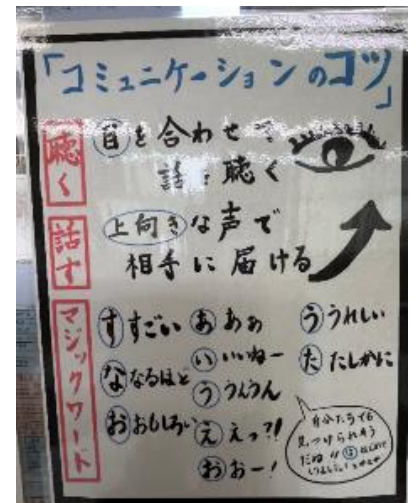 「コミュニケーションのコツ」
聴く
目を合わせて
話を聴く
話す
上向きな声で
相手に届ける
マジックワード
す すごい
な なるほど
お おもしろい
あ あぁ
い いいねー
う うんうん
え えっ?!
お おー!
う うれしい
た たしかに
自分たちでも
見つけられそう
だね!!